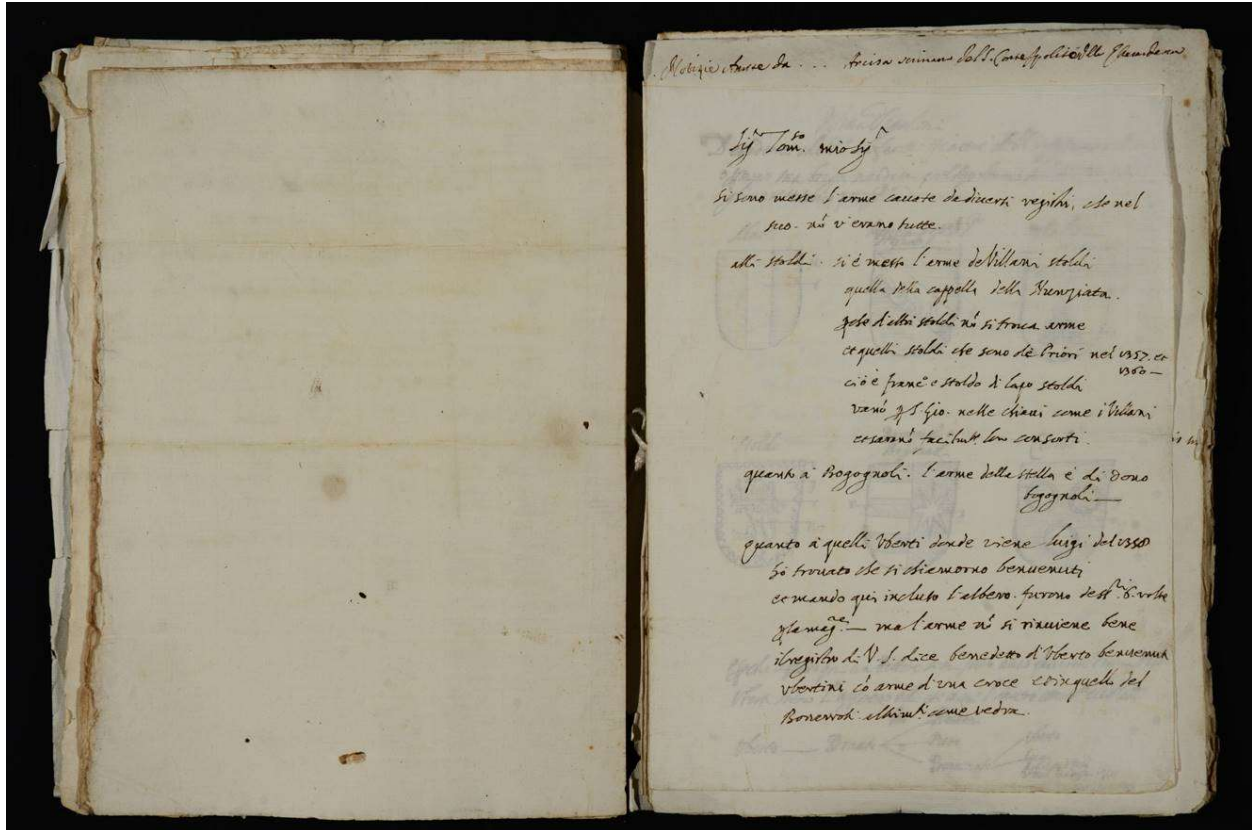 Notizie da ... del S. Conte
Sig.r Tom.so mio Sig.r
Si sono messe l'arme cauate da diuersi registri, che nel
suo. nō v'erano tutte.
alli stoldi. si è messo l'arme de Villani stoldi
quella della cappella della Nunziata.
ꝑche d'altri stoldi nō si troua arme
et quelli stoldi che sono de Priori nel 1357. et
1360 —
cioè franc.o e stoldo di lapo stoldi
vanō ꝑ S. Gio. nelle chiaui come i Villani
et sarannō loro consorti.
quanto a Bogognoli. l'arme della stella è di Dono
bogognoli —
quanto a quelli Vberti donde viene luigi del 1358
hò trouato che si chiamorno benuenuti
et mando qui incluso l'albero. furono de ss.ri 6. volte
ꝑ la mag.re — ma l'arme nō si rinuiene bene
il registro di V. S. dice benedetto d'Vberto benuenuti
vbertini cō arme d'vna croce et in quello del
come vedra.